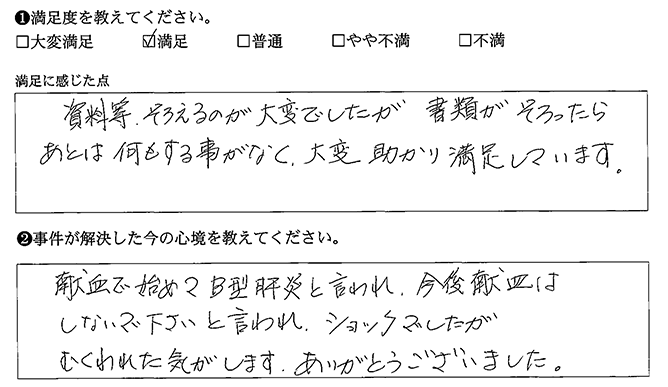 ❶満足度を教えてください。
□大変満足 ☑満足 □普通 □やや不満 □不満
満足に感じた点
資料等、そろえるのが大変でしたが 書類がそろったら
あとは何もする事がなく、大変 助かり満足しています。
❷事件が解決した今の心境を教えてください。
献血で始めてB型肝炎と言われ、今後献血は
しないで下さいと言われ、ショックでしたが
むくわれた気がします。ありがとうございました。